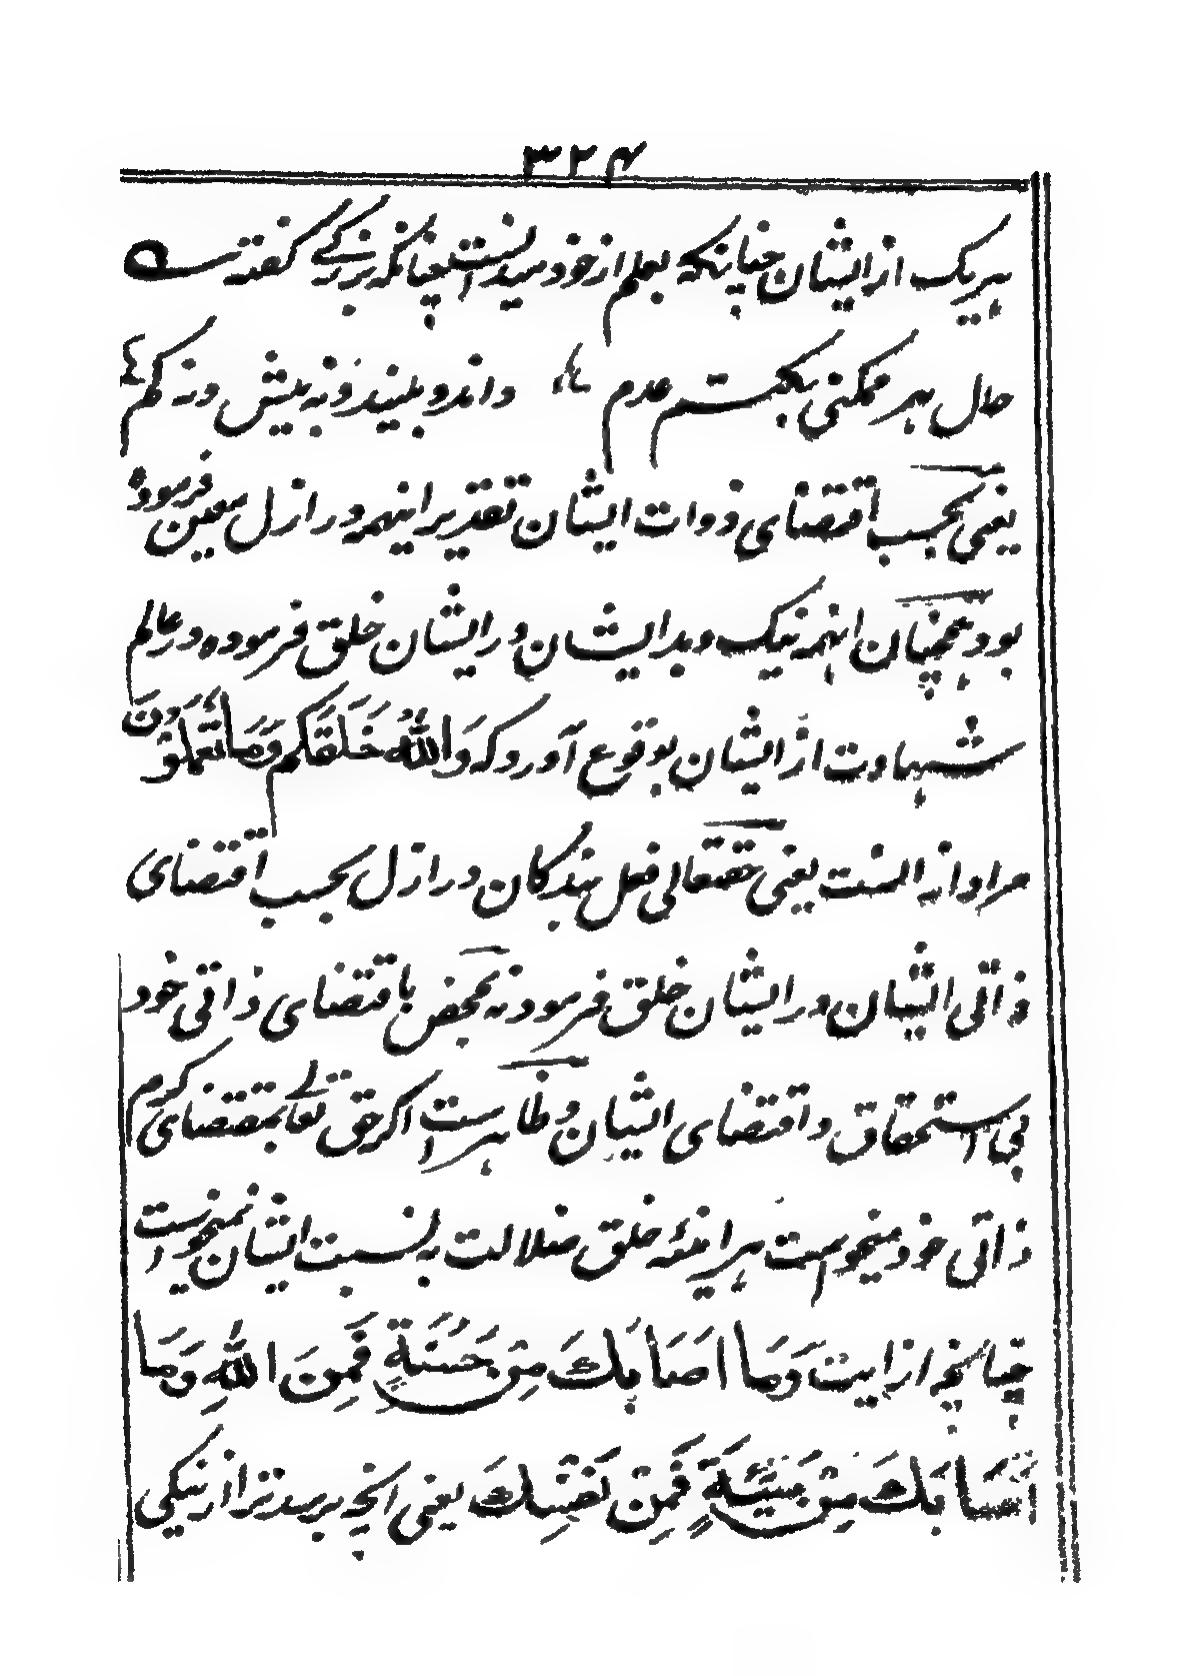 ۳۲۴
هریک از ایشان چنانکه بعلم از خود میدانست چنانکه بزرگے گفته ست
حال هر ممکنی بکتم عدم داند و بیند و نه بیش و نه کم
یعنی بحسب اقتضای ذوات ایشان تقدیر اینهمه در ازل معین فرموده
بود همچنان اینهمه نیک و بد ایشان در ایشان خلق فرموده در عالم
شهادت از ایشان بوقوع آورد که وَاللهُ خَلَقَکُم وَمَا تَعْمَلُوْنَ
مراد از انست یعنی حقتعالی فعل بندگان در ازل بحسب اقتضای
ذاتی ایشان در ایشان خلق فرمود نه بمحض باقتضای ذاتی خود
بی استحقاق و اقتضای ایشان و ظاهرست اگر حق تعالے بمقتضای کرم
ذاتی خود میخواست هر آینه خلق ضلالت به نسبت ایشان نمیخواست
چنانچه ازین آیت وَمَا اَصَابَكَ مِنْ حَسَنَةٍ فَمِنَ اللهِ وَمَا
اَصَابَكَ مِنْ سَیِّئَةٍ فَمِنْ نَفْسِكَ یعنی آنچه برسد ترا از نیکی